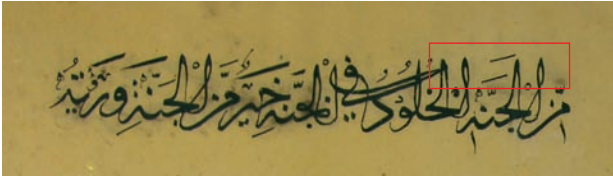 من الجنة الخلود في الجنة خير من الجنة ورؤية